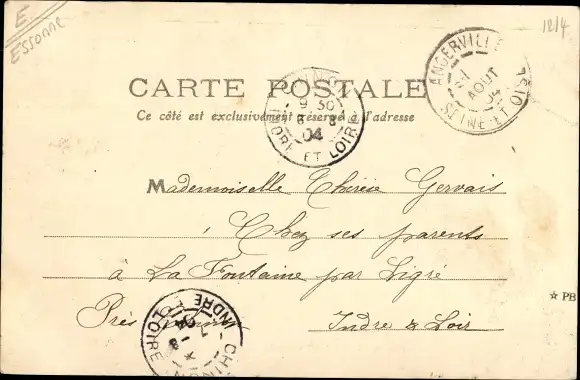 E
Essonne
12/4
CARTE POSTALE
Ce côté est exclusivement réservé à l'adresse
ANGERVILLE
1
AOUT
04
SEINE-ET-OISE
9 30
8
04
INDRE ET LOIRE
Mademoiselle Thérèse Gervais
Chez ses parents
à La Fontaine par Ligré
Près
Indre & Loir
★ PB
CHINON
INDRE ET LOIRE